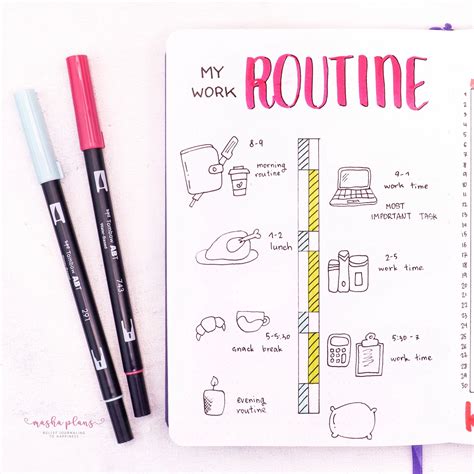 MY WORK
ROUTINE
8-9
morning
routine
9-1
work time
MOST
IMPORTANT TASK
1-2
lunch
2-5
work time
5-5:30
snack break
5:30 -
work time
evening
routine
Tombow ABT
743
Tombow ABT
291
masha plans
BULLET JOURNALING
TO HAPPINESS